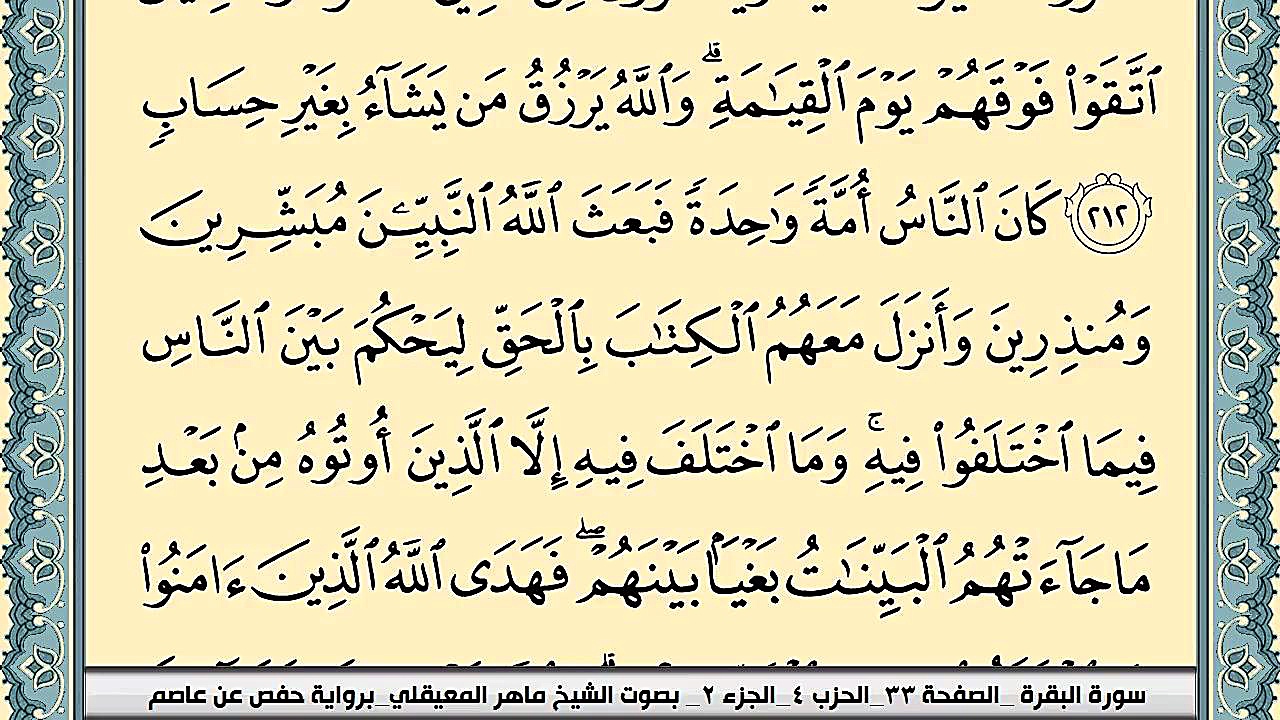 ٱتَّقَوۡاْ فَوۡقَهُمۡ يَوۡمَ ٱلۡقِيَٰمَةِۗ وَٱللَّهُ يَرۡزُقُ مَن يَشَآءُ بِغَيۡرِ حِسَابٖ
٢١٢ كَانَ ٱلنَّاسُ أُمَّةٗ وَٰحِدَةٗ فَبَعَثَ ٱللَّهُ ٱلنَّبِيِّـۧنَ مُبَشِّرِينَ
وَمُنذِرِينَ وَأَنزَلَ مَعَهُمُ ٱلۡكِتَٰبَ بِٱلۡحَقِّ لِيَحۡكُمَ بَيۡنَ ٱلنَّاسِ
فِيمَا ٱخۡتَلَفُواْ فِيهِۚ وَمَا ٱخۡتَلَفَ فِيهِ إِلَّا ٱلَّذِينَ أُوتُوهُ مِنۢ بَعۡدِ
مَا جَآءَتۡهُمُ ٱلۡبَيِّنَٰتُ بَغۡيَۢا بَيۡنَهُمۡۖ فَهَدَى ٱللَّهُ ٱلَّذِينَ ءَامَنُواْ
سورة البقرة _الصفحة ٣٣_الحزب ٤_الجزء ٢_ بصوت الشيخ ماهر المعيقلي_برواية حفص عن عاصم